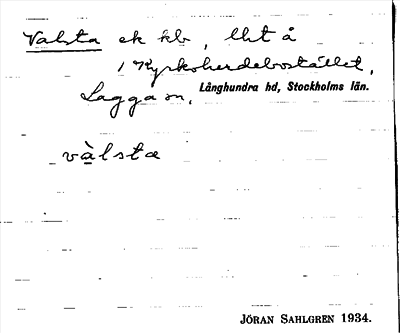 Valsta ek kb, llht å
1 Kyrkoherdebostället,
Lagga sn, Långhundra hd, Stockholms län.
vàlsta
JÖRAN SAHLGREN 1934.